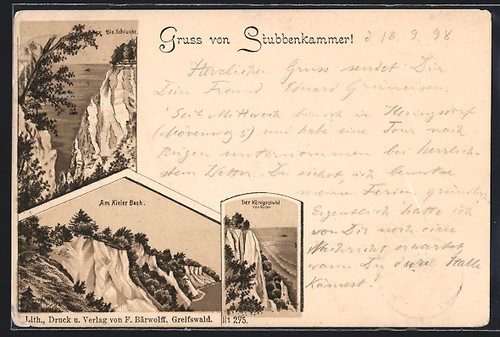 Die Schlucht.
Gruss von Stubbenkammer!
d 18. 9. 98
Herzlichen Gruss sendet Dir
Dein Freund Eduard
Seit Mittwoch bin ich in Heringsdorf
(Mövenweg 5) und habe eine Tour nach
Rügen unternommen bei herrlich-
stem Wetter. Du siehst, ich benutze
meine Ferien gründlich.
Eigentlich hatte ich
von Dir noch eine
Nachricht erwartet
wann Du Halle
kämest!
Am Kieler Bach.
Der Königsstuhl
Lith., Druck u. Verlag von F. Bärwolff, Greifswald.
275.